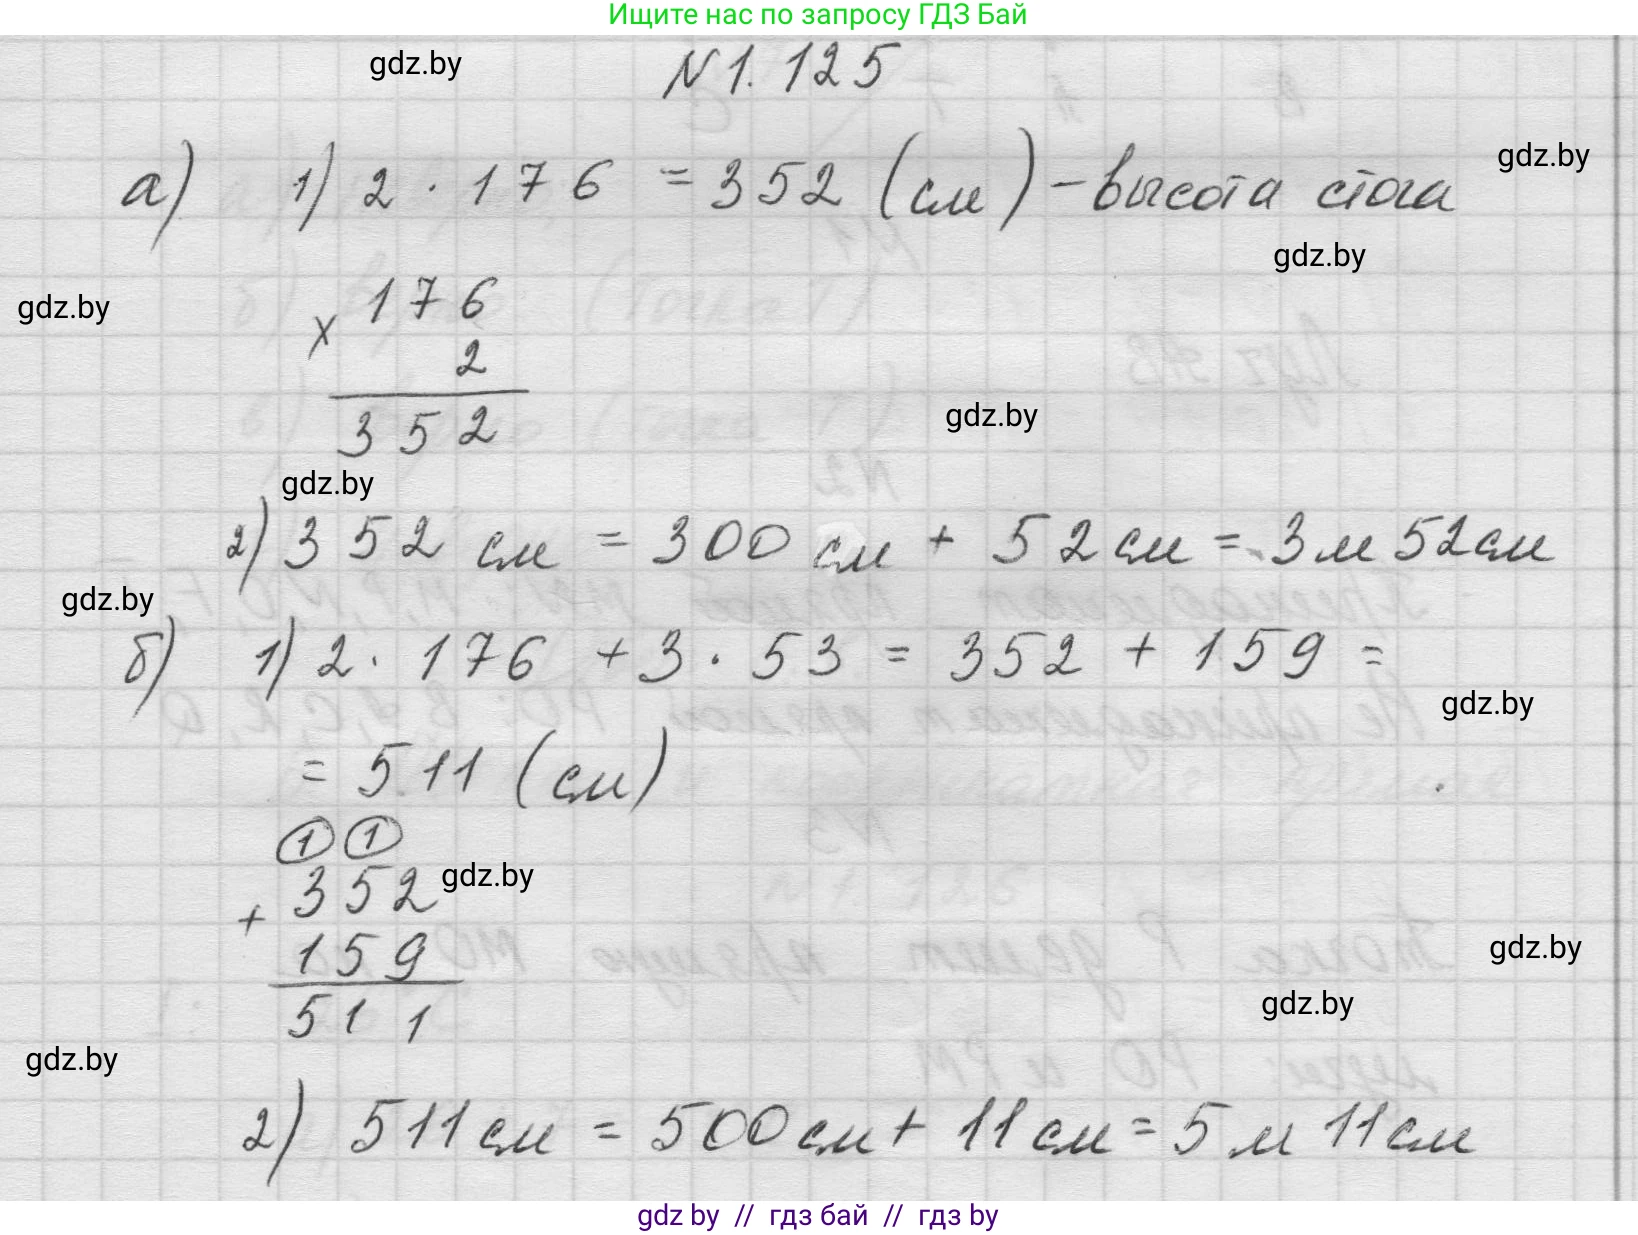 Ищите нас по запросу ГДЗ Бай
gdz.by
N1.125
gdz.by
а) 1) 2 · 176 = 352 (см) - высота стога
gdz.by
gdz.by
176
× 2
352
gdz.by
gdz.by
2) 352 см = 300 см + 52 см = 3 м 52 см
gdz.by
б) 1) 2 · 176 + 3 · 53 = 352 + 159 =
gdz.by
= 511 (см)
1 1
352
gdz.by
+ 159
511
gdz.by
gdz.by
gdz.by
2) 511 см = 500 см + 11 см = 5 м 11 см
gdz by // гдз бай // гдз by